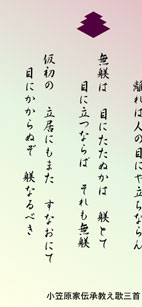 離れは人の目にや立ちならん
無躾は 目にたたぬかは 躾とて
目に立つならば それも無躾
仮初の 立居にもまた すなおにて
目にかからぬぞ 躾なるべき
小笠原家伝承教え歌三首